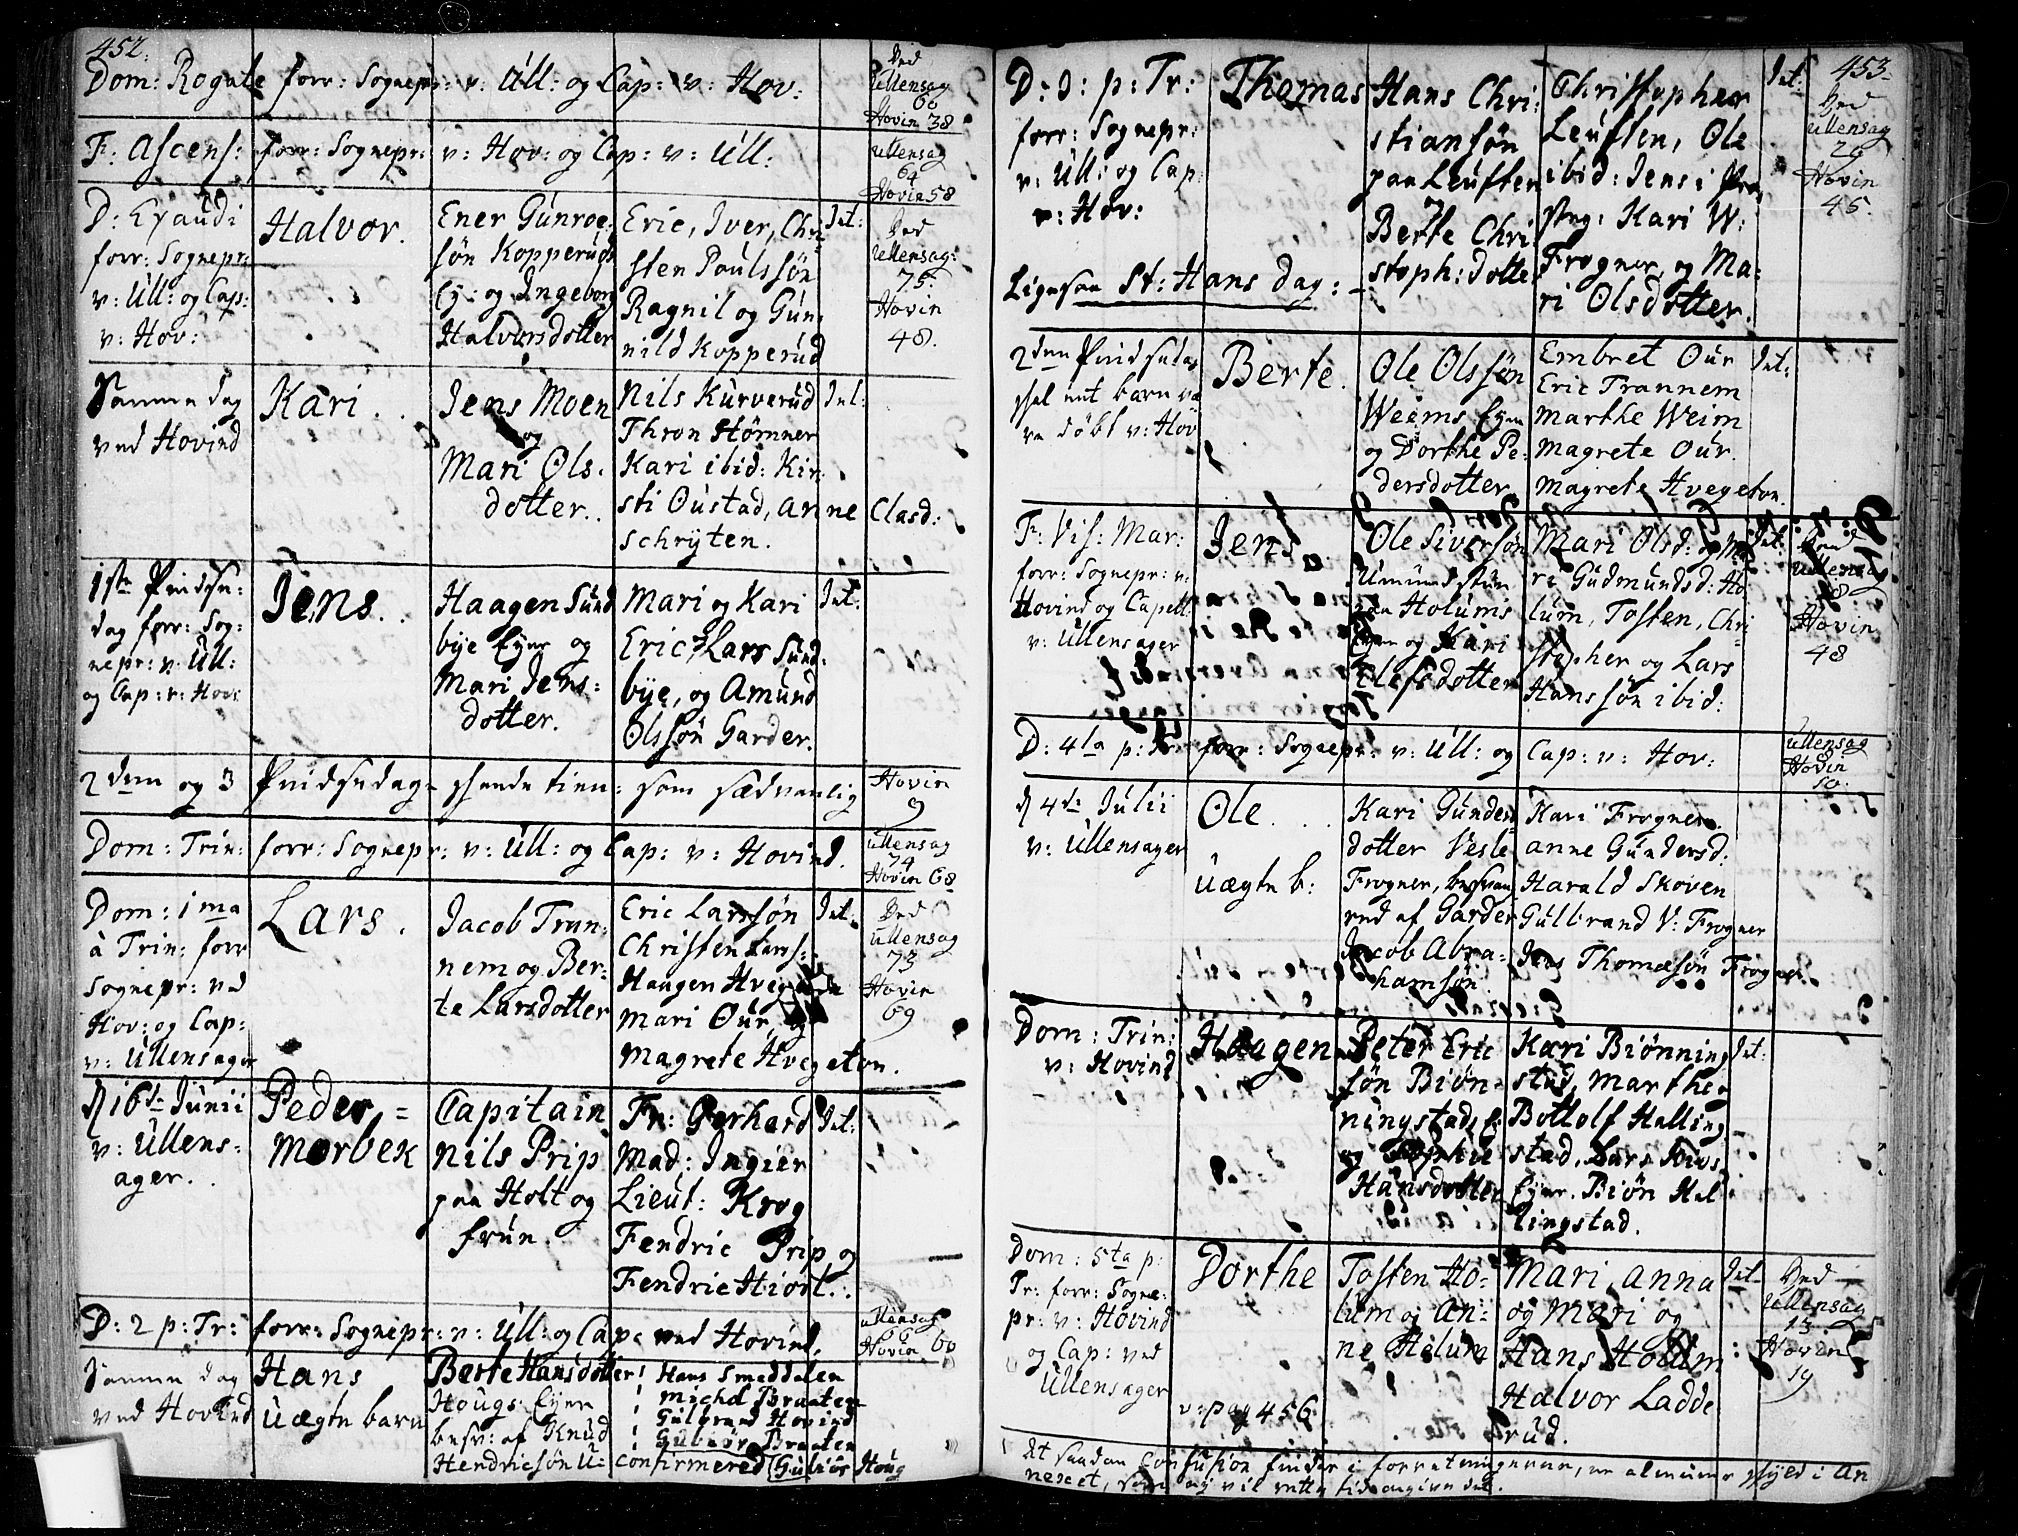 452.
Dom: Rogate forr: Sognepr: v: Ull: og Cap: v: Hov:
Ved
Ullensag
60
Hovin 38
F: Ascens: forr: Sognepr: v: Hov: og Cap: v: Ull:
Ullensag
64
Hovin 58
D: Exaudi
forr: Sognepr:
v: Ull: og Cap:
v: Hov:
Halvor.
Ener Gunroe-
søn Kopperuds
Ey: og Ingeborg
Halvorsdotter
Eric, Iver, Chri-
sten Poulssøn
Ragnil og Gun-
nild Kopperud
Jnt:
Ved
Ullensag:
75.
Hovin
48.
Samme dag
ved Hovind
Kari.
Jens Moen
og
Mari Ols-
dotter.
Nils Kurverud
Thron Hømner
Kari ibid: Kir-
sti Oustad, Anne Clasd:
Schryten.
Jnt:
1ste Pindse-
dag forr: Sog-
nepr: v: Ull:
og Cap: v: Hov:
Jens.
Haagen Sund
bye Eyer og
Mari Jens-
dotter.
Mari og Kari
Eric, Lars Sund-
bye, og Amund
Olssøn Garder.
Jnt:
2den og 3 Pindsedag skeede tien: som sædvanlig
Hovin
9
Dom: Trin: forr: Sognepr: v: Ull: og Cap: v: Hovind.
Ullensag
74
Hovin 68
Dom: 1ma
à Trin: forr
Sognepr: ved
Hov: og Cap:
v: Ullensager
Lars.
Jacob Tran-
nem og Ber-
te Larsdotter
Eric Larssøn
Christen Larss:
Haagen
Mari Our, og
Magrete Hvegeton.
Jnt:
Ved
Ullensag
73
Hovin
69
d 16de Junii
v: Ullens-
ager.
Peder
Morbek
Capitain
Nils Prip
paa Holt og
frun.
Fr: Gerhard
Mad: Ingier
Lieut: Krog
Fendric Prip og
Fendric Hiort.
Jnt:
D: 2 p: Tr: forr: Sognepr: v: Ull: og Cap: ved Hovind.
Ullensag
66
Hovin 60
Samme dag
ved Hovind
Hans
Uægte barn
Berte Hansdotter
Hougs Eyer
besv: af Knud
Hendricsøn U-confirmered
Hans Smeddalen
Michel Braaten
Gulbrand Hovind
Gubiør Braaten
Guliør Houg
453.
D: 3: p: Tr:
forr: Sognepr:
v: Ull: og Cap:
v: Hov:
Thomas
Hans Chri-
stiansøn
paa Leuften
Berte Chri
stoph: dotter
Christopher
Leuften, Ole
ibid: Jens i Præ
steg: Kari W:
Frogner, og Ma-
ri Olsdotter.
Jnt:
Ved
Ullensag
29
Hovin
45.
Ligesaa St: Hans dag:
2den Pindsedag
skal eet barn væ
re døbt v: Hov
Berte.
Ole Olssøn
Weems Eyer
og Dorthe Pe-
dersdotter
Embret Our
Eric Trannem
Marthe Weim
Magrete Our.
Magrete Hvegeton.
Jnt:
F: Vis: Mar:
forr: Sognepr: v:
Hovind og Capell:
v: Ullensager
Jens
Ole Siversøn
paa Holums
Eyer og Kari
Olefsdotter
Mari Olsd: og Ma
ri Gudmundsd: Ho
lum, Tosten, Chri-
stopher og Lars
Hanssøn ibid:
Jnt:
Ved
Ullensag
Hovin
48
D: 4ta p: Tr: forr: Sognepr: v: Ull: og Cap: v: Hov:
Ullensag
Hovin
50.
d 4de Julii
v: Ullensager
Ole.
Uægte b:
Kari Gunders
dotter Vesle
Frogner, besvan
red af Garder
Jacob Abra-
hamsøn.
Kari Frogner.
Anne Gundersd:
Harald Skoven
Gulbrand V: Frogner
Jens Thomæsøn Frogner.
Dom: Trin:
v: Hovind
Haagen
Peter Eric
søn Biøn-
ningstad,
og Sophie
Hansdotter
Kari Biønning
stad, Marthe
Bottolf Halling
stad, Lars
Eyer. Biøn Hal
lingstad.
Jnt:
Dom: 5ta p:
Tr: forr: Sogne-
pr: v: Hovind
og Cap: ved
Ullensager
Dorthe
v: pag 456
Tosten Ho-
lum og An-
ne Holum
Mari, Anna
og Mari og
Hans Holum
Halvor Ladde
rud.
Jnt:
Ved
Ullensag
13
Hovin
19
At saadan Confusion findes i forretningerne, er aleneme skyld i An
nexet, som ey vil rette tid angive det.